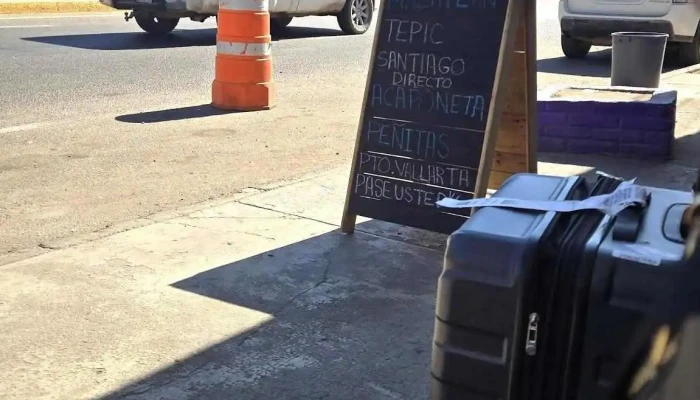 TEPIC
SANTIAGO
DIRECTO
ACAPONETA
PEÑITAS
PTO. VALLARTA
PASE USTED